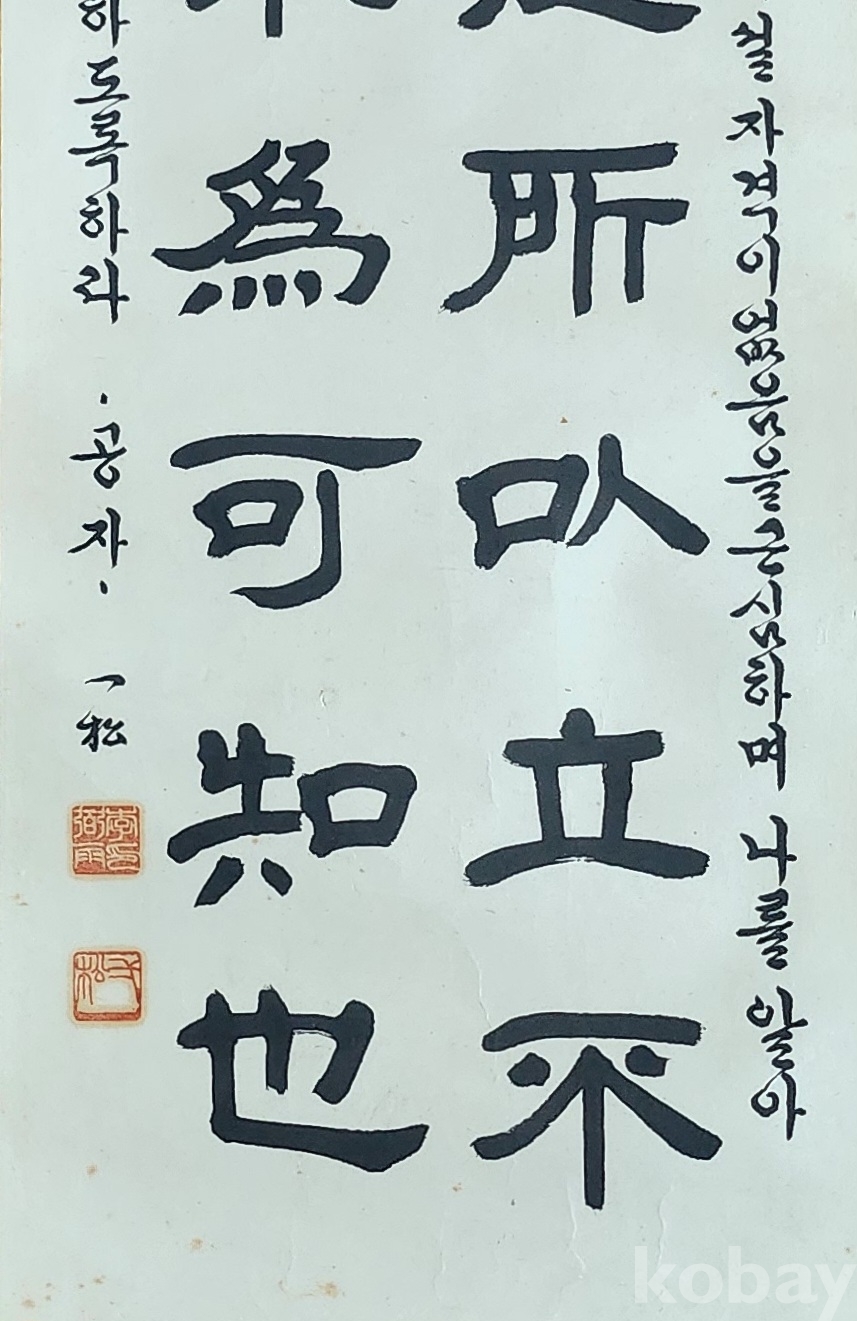 설 자격이 없음을 근심하며 나를 알아
所以立不
爲可知也
하도록하라 ·공자· 一松
弌松
kobay